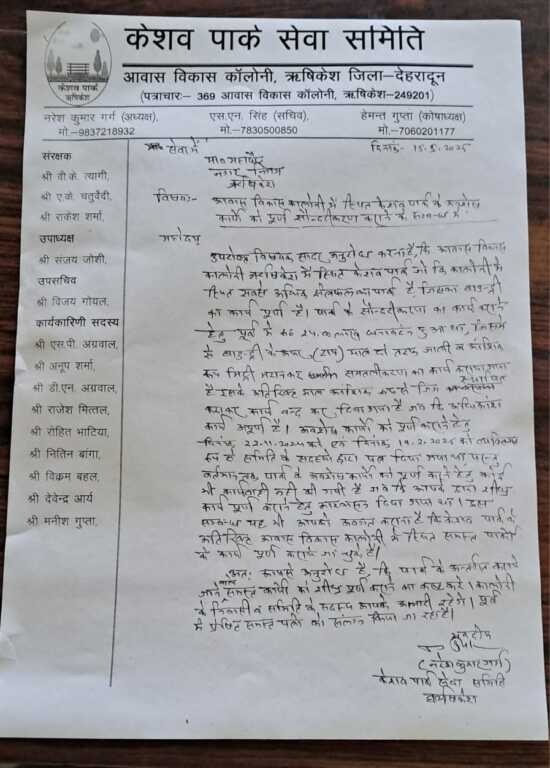 केशव पार्क सेवा समिति
केशव पार्क
ऋषिकेश
आवास विकास कॉलोनी, ऋषिकेश जिला–देहरादून
(पत्राचारः– 369 आवास विकास कॉलोनी, ऋषिकेश–249201)
नरेश कुमार गर्ग (अध्यक्ष),
मो.–9837218932
एस.एन. सिंह (सचिव),
मो.–7830500850
हेमन्त गुप्ता (कोषाध्यक्ष)
मो.–7060201177
संरक्षक
श्री वी.के. त्यागी,
श्री ए.के. चतुर्वेदी,
श्री राकेश शर्मा,
उपाध्यक्ष
श्री संजय जोशी,
उपसचिव
श्री विजय गोयल,
कार्यकारिणी सदस्य
श्री एस.पी. अग्रवाल,
श्री अनूप शर्मा,
श्री डी.एन. अग्रवाल,
श्री राजेश मित्तल,
श्री रोहित भाटिया,
श्री नितिन बांगा,
श्री विक्रम बहल,
श्री देवेन्द्र आर्य
श्री मनीश गुप्ता,
सेवा में
दिनांक- 15.5.2025
नगर निगम
ऋषिकेश
विषयः- आवास विकास कालोनी में स्थित केशव पार्क के अवशेष
कार्य को पूर्ण सौन्दर्यीकरण कराने के सम्बन्ध में
महोदय
उपरोक्त विषयक सादर अनुरोध करना है, कि आवास विकास
कालोनी ऋषिकेश में स्थित केशव पार्क जो कि कालोनी में
स्थित सबसे अधिक क्षेत्रफल का पार्क है, जिसका बाउन्ड्री
का कार्य पूर्ण है। पार्क के सौन्दर्यीकरण का कार्य कराने
हेतु पूर्व में
कार्य बन्द कर दिया गया है जब कि अधिकांश
कार्य अपूर्ण है। अवशेष कार्य को पूर्ण कराने हेतु
दिनांक 22.11.2024 को एवं दिनांक 19.2.2025 को व्यक्तिगत
रूप से समिति के सदस्यों द्वारा पत्र दिया गया था परन्तु
वर्तमान तक पार्क के अवशेष कार्य को पूर्ण कराने हेतु कोई
भी कार्यवाही नहीं की गयी है जब कि आपके द्वारा शीघ्र
कार्य पूर्ण कराने हेतु आश्वासन दिया गया था। इस
सम्बन्ध यह भी आपको अवगत कराना है कि केशव पार्क के
अतिरिक्त आवास विकास कालोनी में स्थित समस्त पार्कों
के कार्य पूर्ण कराये जा चुके हैं।
अतः आपसे अनुरोध है, कि पार्क के अन्तर्गत कराये
जाने वाले समस्त कार्यों को शीघ्र पूर्ण कराने का कष्ट करें। कालोनी
के निवासी व समिति के सदस्य आपके आभारी रहेंगे। पूर्व
में प्रेषित समस्त पत्रों को संलग्न किया जा रहा है।
भवदीय
(नरेश कुमार गर्ग)
केशव पार्क सेवा समिति
ऋषिकेश